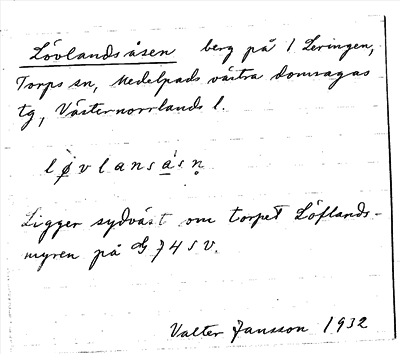 Lövlandsåsen berg på 1 Leringen,
Torps sn, Medelpads västra domsagas
tg, Västernorrlands l.
lø̀vlansá̲sn̥
Ligger sydväst om torpet Löflands-
myren på 74 SV.
Valter Jansson 1932